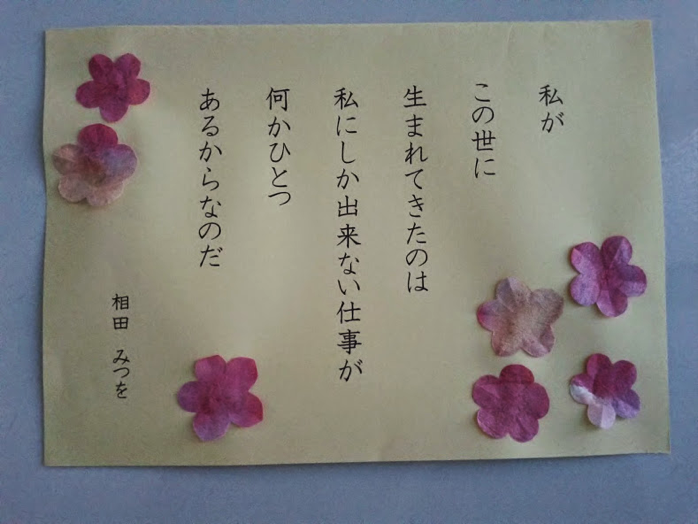 私が
この世に
生まれてきたのは
私にしか出来ない仕事が
何かひとつ
あるからなのだ
相田 みつを